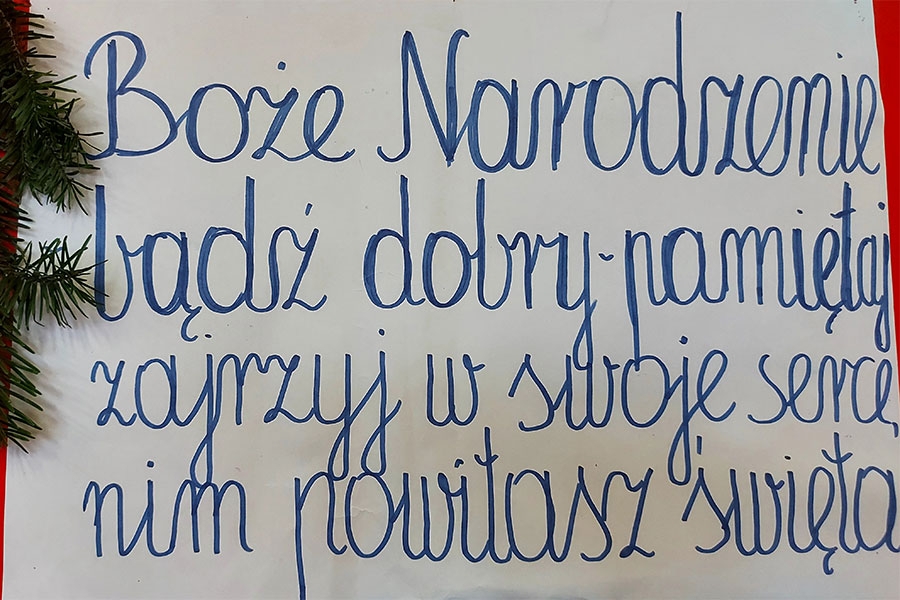 Boże Narodzenie
bądź dobry-pamiętaj
zajrzyj w swoje serce,
nim powitasz święta